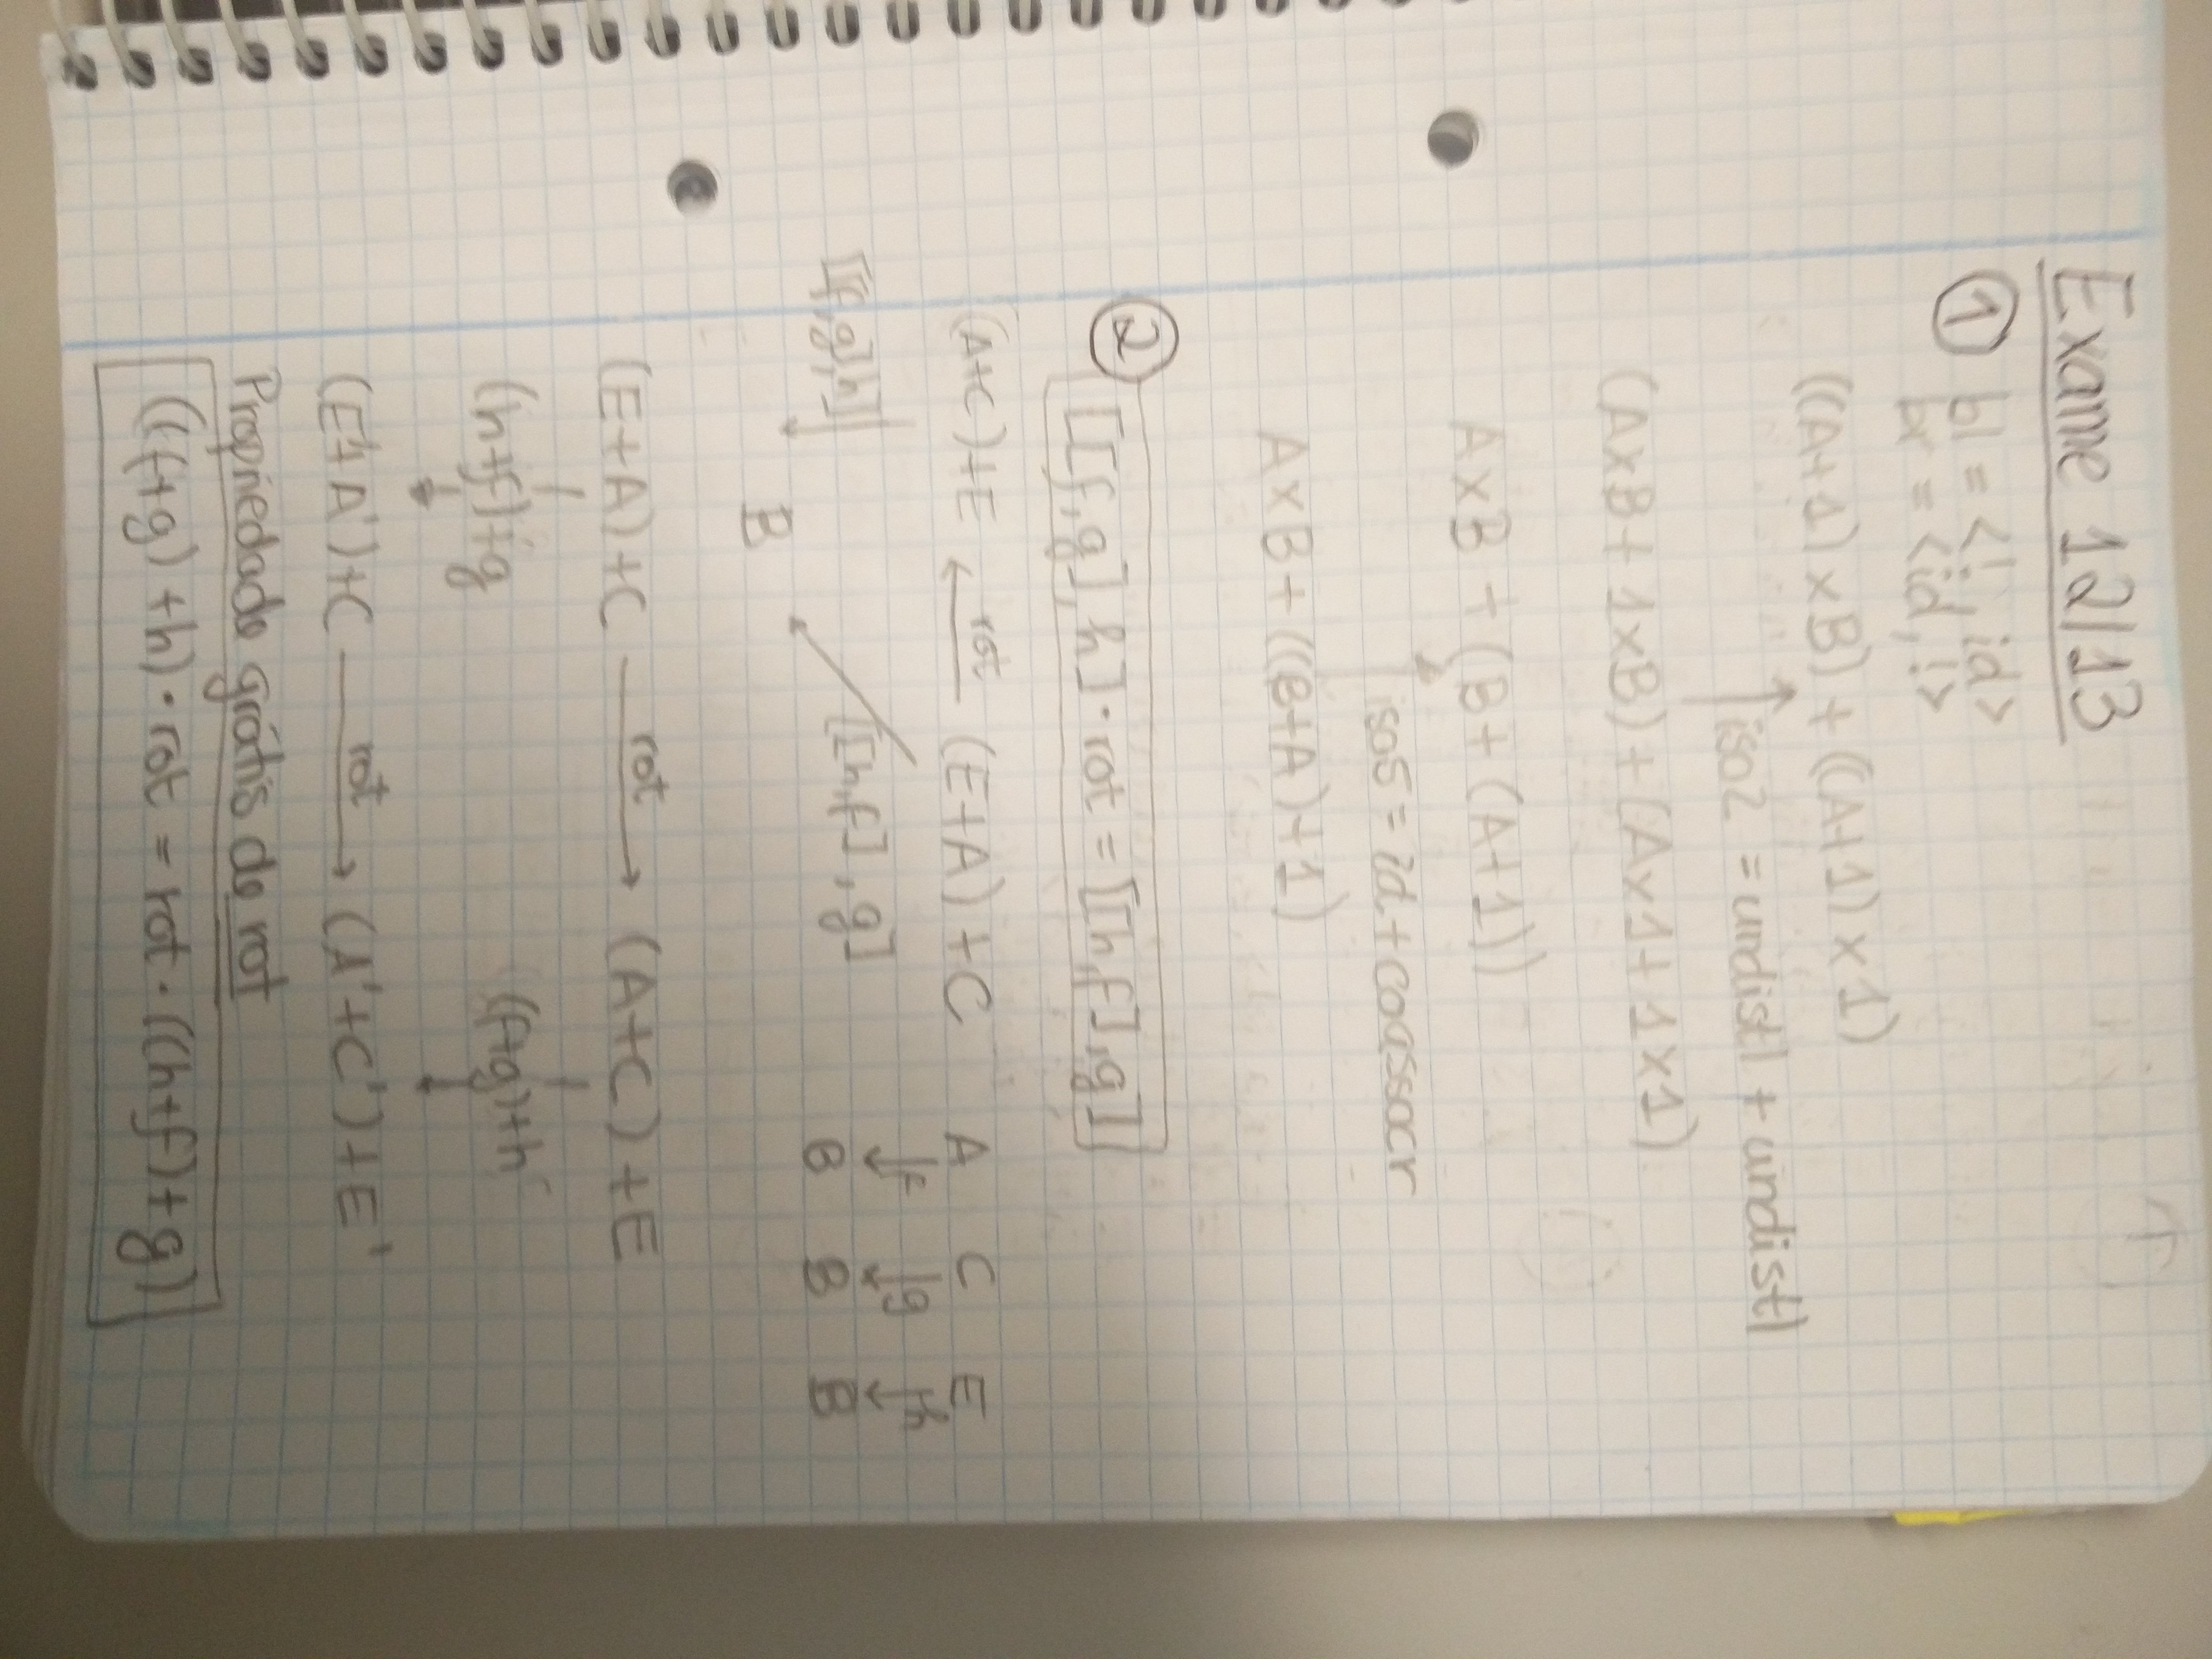 Exame 12/13
① bl = <!, id>
br = <id, !>
((A+1)×B) + ((A+1)×1)
iso2 = undistl + undistl
(A×B + 1×B) + (A×1 + 1×1)
A×B + (B + (A+1))
iso5 = id + coassocr
A×B + ((B+A)+1)
② [[f,g],h]·rot = [[h,f],g]
(A+C)+E ← rot (E+A)+C A C E
[[f,g],h] [[h,f],g] f g h
B B B B
(E+A)+C rot → (A+C)+E
(h+f)+g (f+g)+h
(E'+A')+C rot → (A'+C')+E'
Propriedade grátis de rot
((f+g)+h)·rot = rot·((h+f)+g)